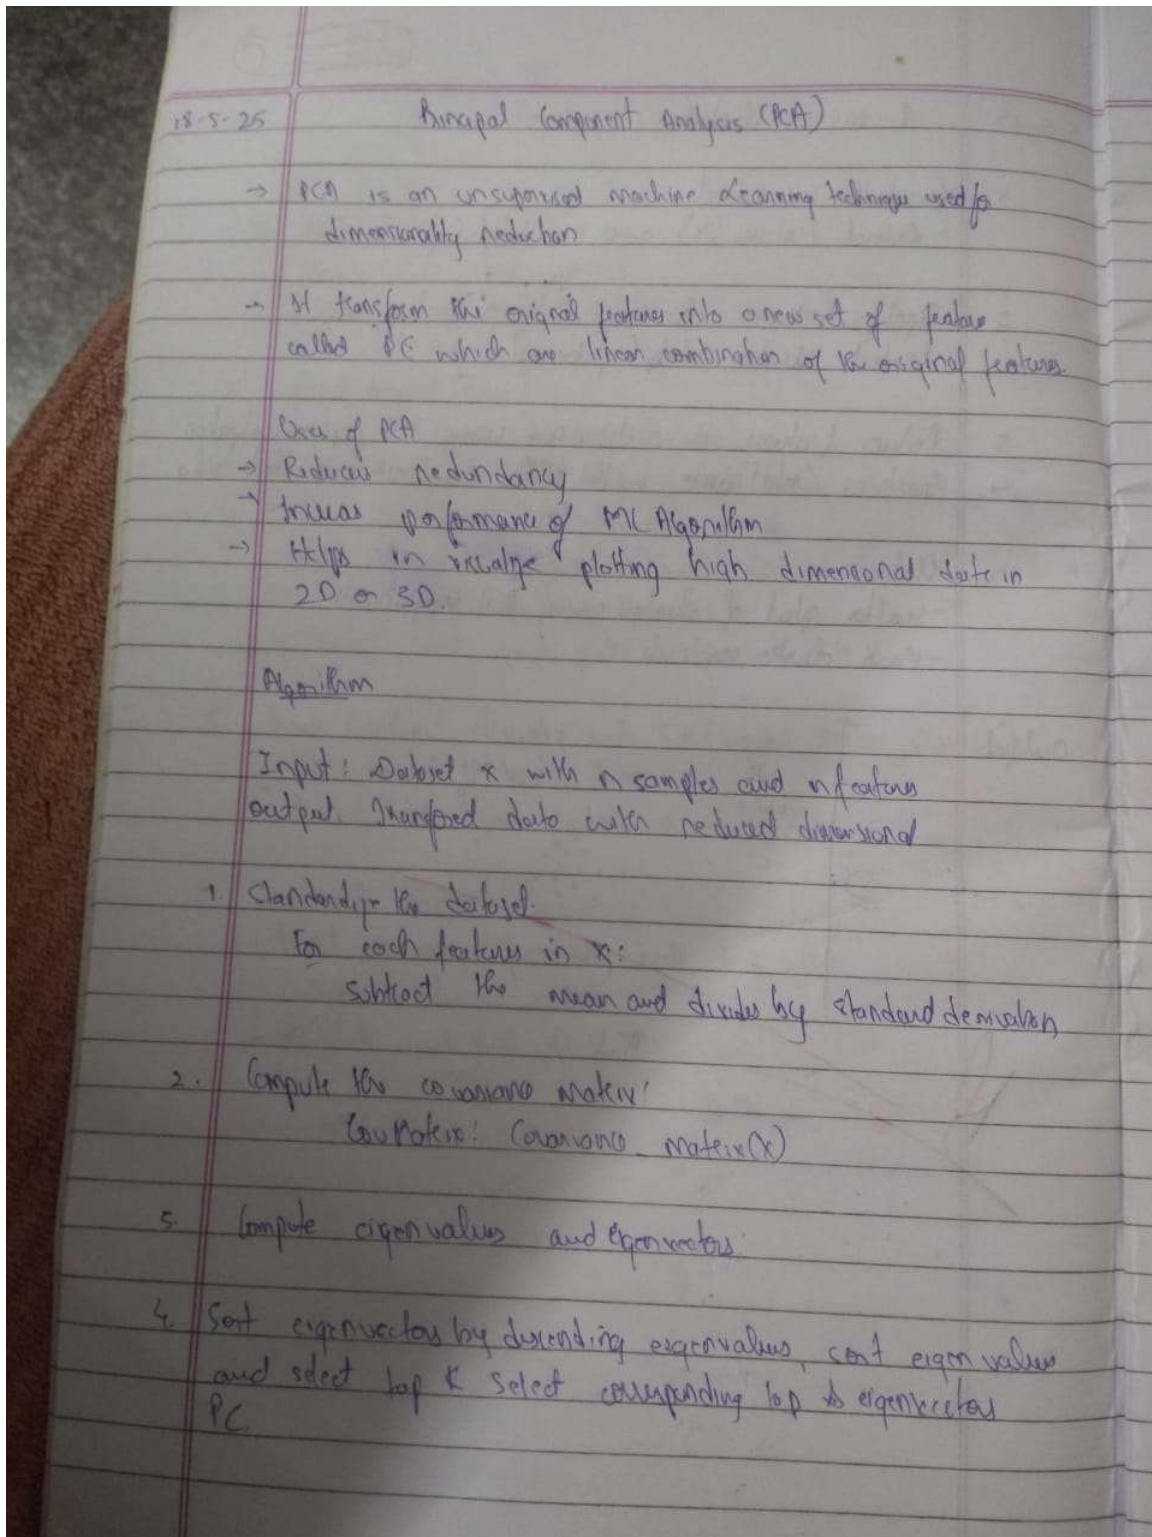 18-5-25 Principal Component Analysis (PCA)
→ PCA is an unsupervised machine Learning technique used for
dimensionality reduction
→ It transform the original features into a new set of feature
called PC which are linear combination of the original features.
Uses of PCA
→ Reduces redundancy
→ Increas performance of ML Algorithm
→ Helps in visualize plotting high dimensional data in
2D or 3D.
Algorithm
Input: Dataset x with n samples and n features
output. data with reduced dimensional
1. Standardize the dataset.
For each features in x:
subtract the mean and divides by standard derivation
2. Compute the covariance matrix:
Cov Matrix: Covariance_matrix(X)
3. Compute eigenvalues and eigenvectors.
4. Sort eigenvectors by descending eigenvalues, sort eigen values
and select top K select corresponding top eigenvectors
PC.